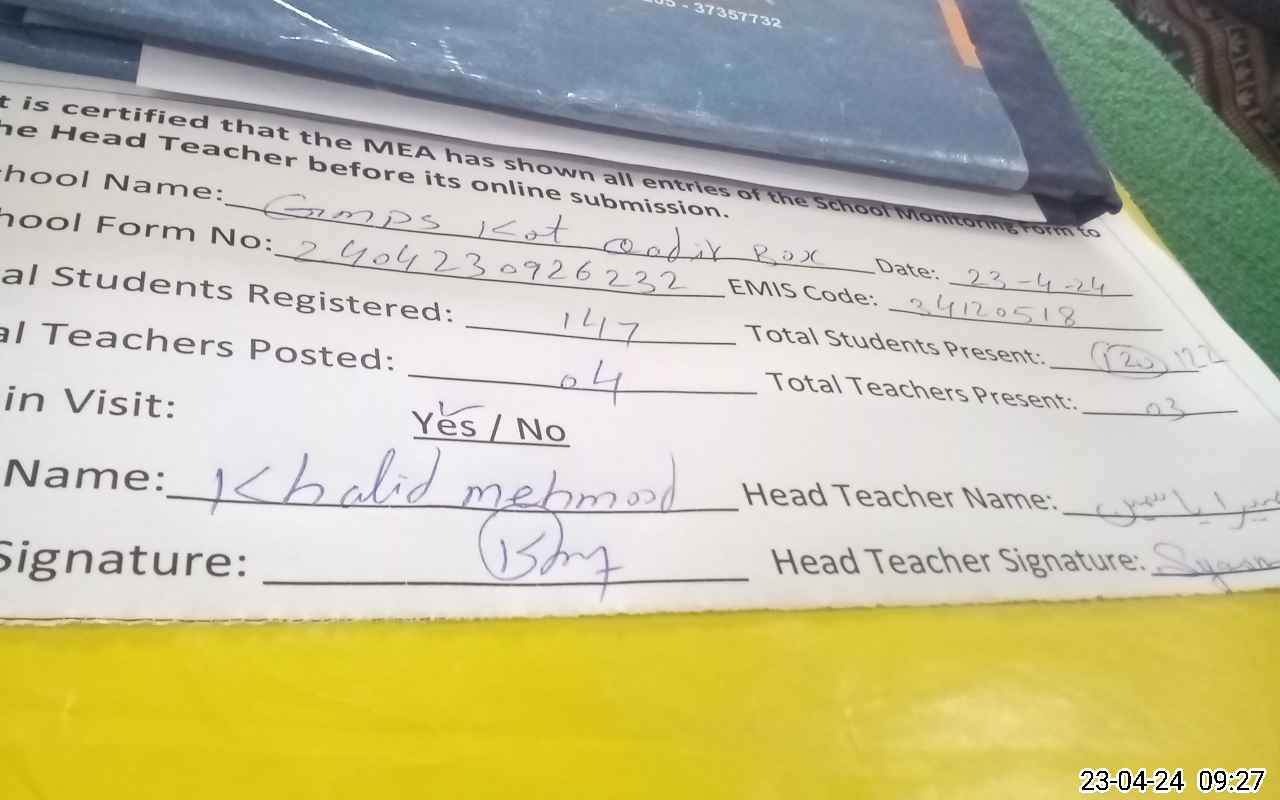 05 - 37357732
t is certified that the MEA has shown all entries of the School Monitoring Form to
he Head Teacher before its online submission.
chool Name: GMPS Kot Qadir Box Date: 23-4-24
hool Form No: 2404230926232 EMIS Code: 34120518
al Students Registered: 147 Total Students Present: 120 122
al Teachers Posted: 04 Total Teachers Present: 03
in Visit: Yes / No
Name: Khalid mehmood Head Teacher Name: سمیرا یاسمین
Signature: Head Teacher Signature:
23-04-24 09:27